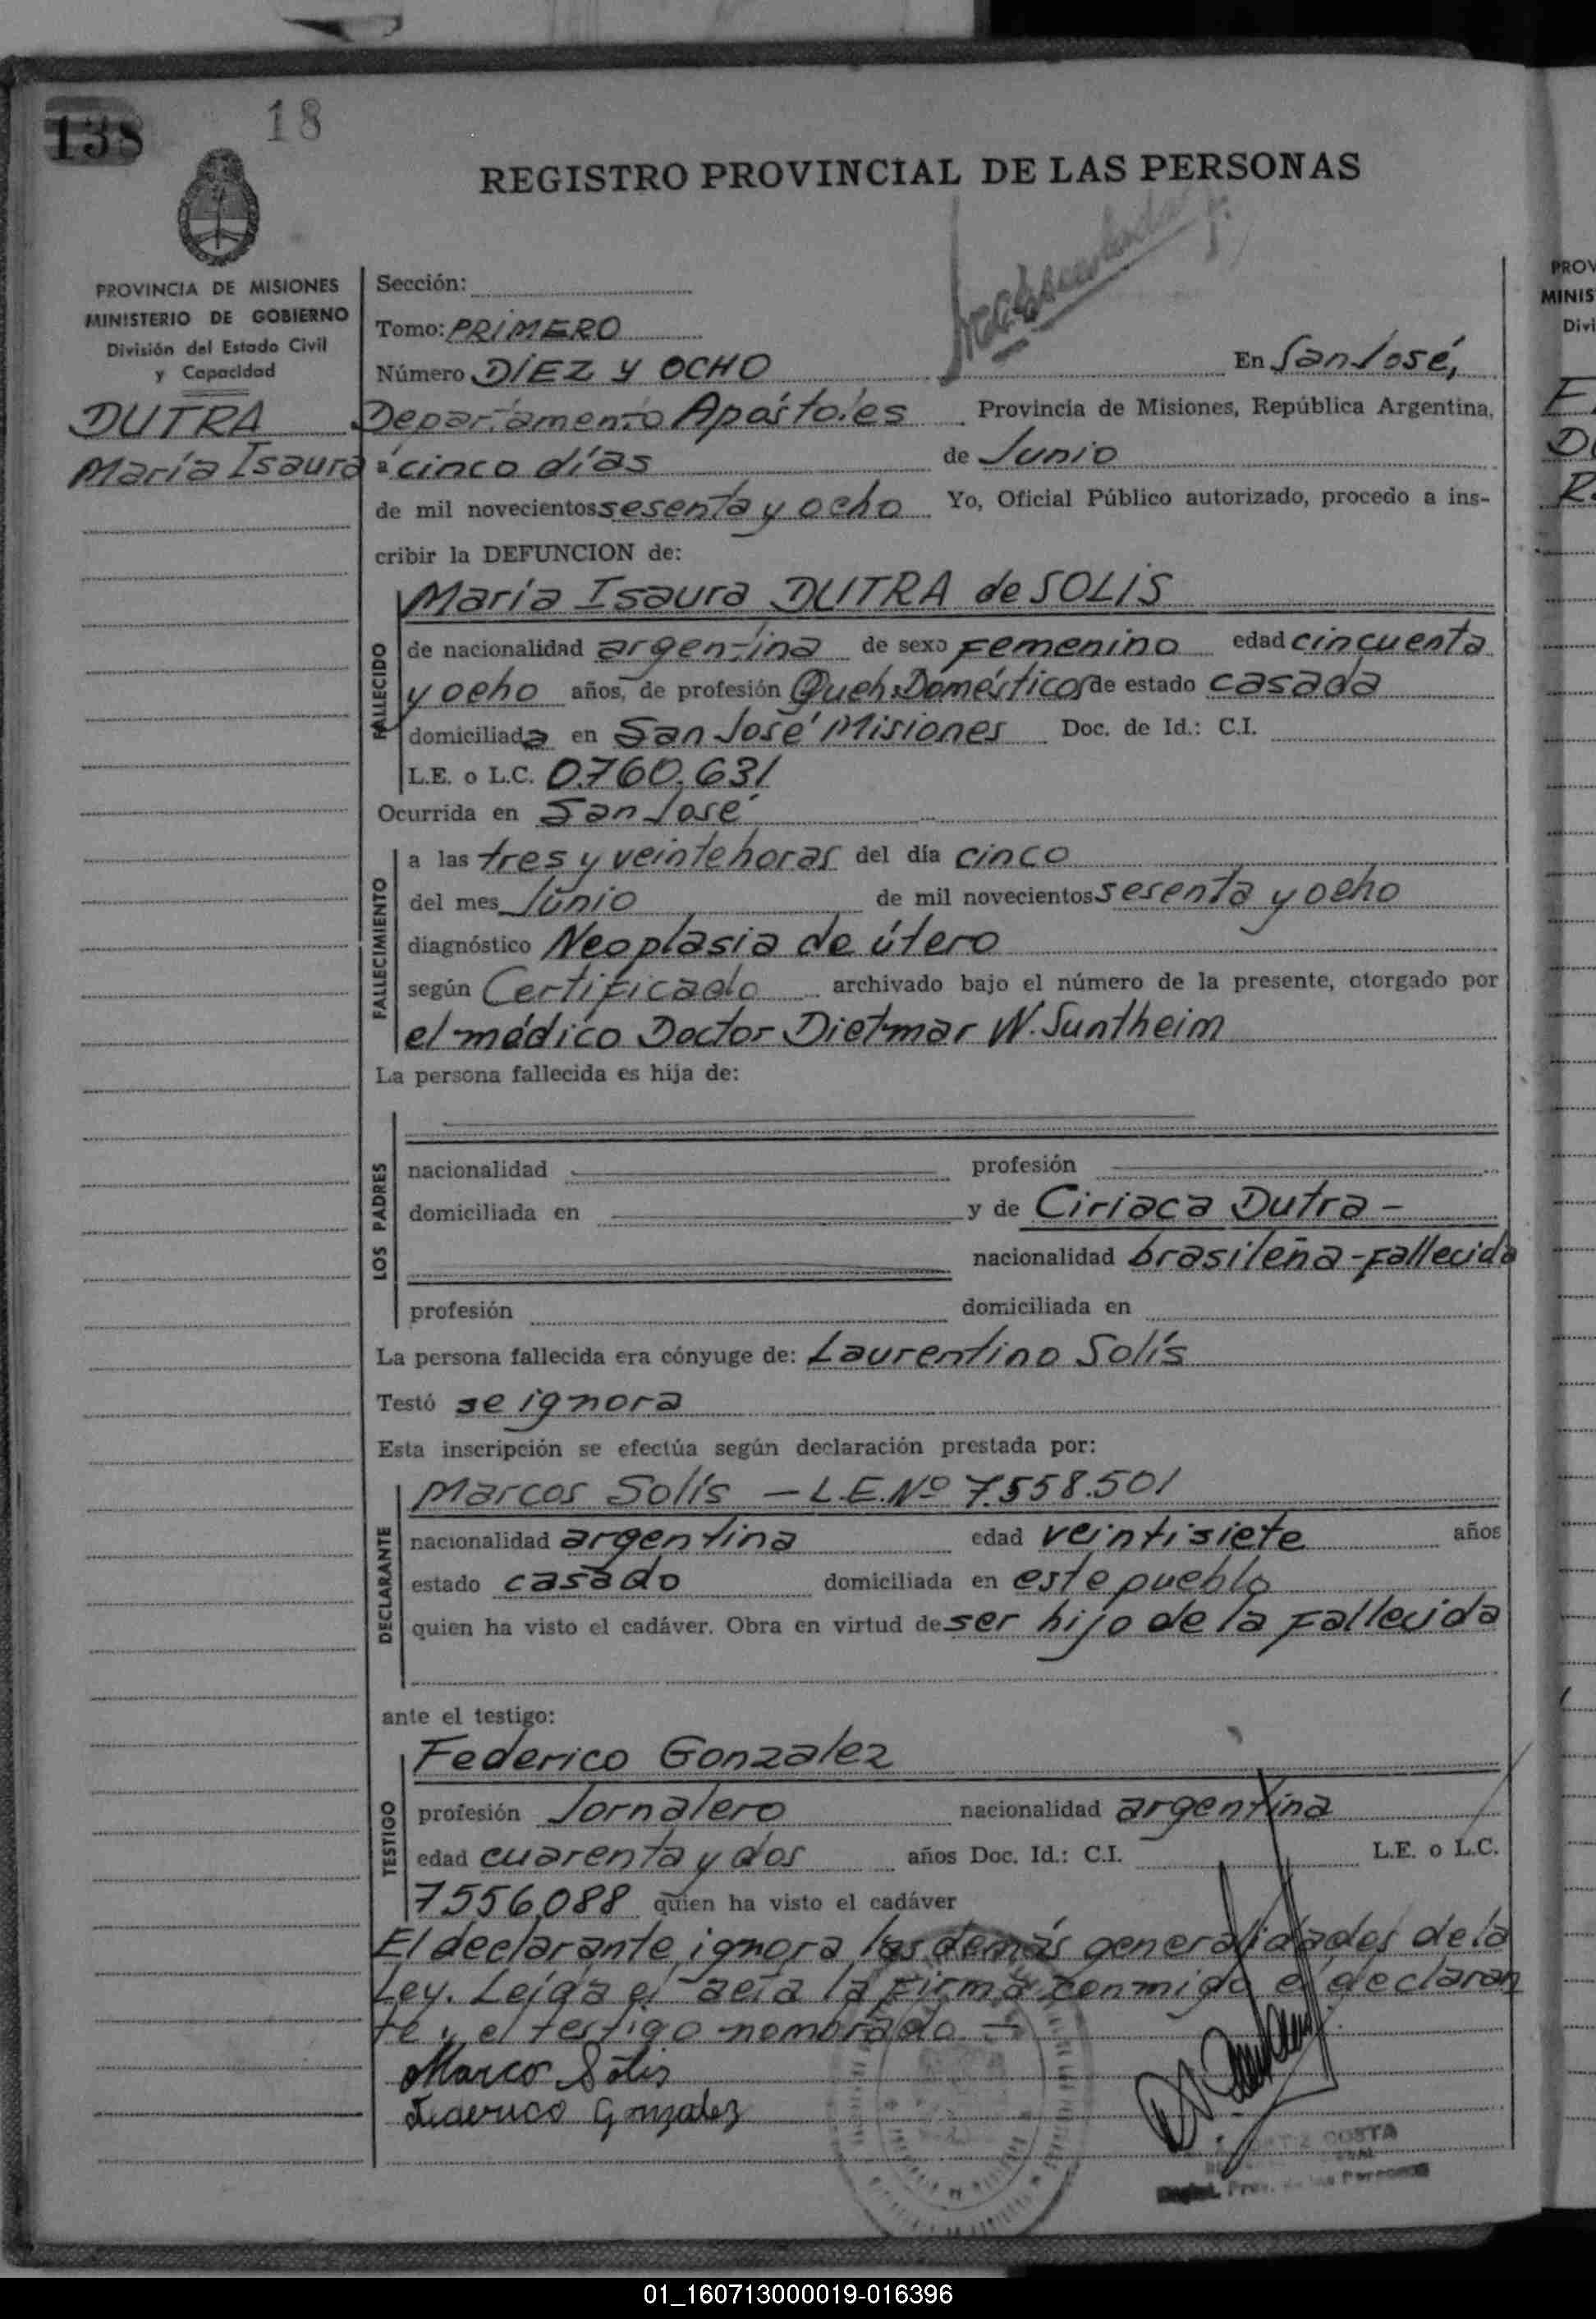 138
18
REGISTRO PROVINCIAL DE LAS PERSONAS
PROVINCIA DE MISIONES
MINISTERIO DE GOBIERNO
División del Estado Civil
y Capacidad
DUTRA
María Isaura
Sección:
Tomo: PRIMERO
Número DIEZ Y OCHO En San José,
Departamento Apóstoles Provincia de Misiones, República Argentina,
a cinco días de Junio
de mil novecientos sesenta y ocho Yo, Oficial Público autorizado, procedo a ins-
cribir la DEFUNCION de:
FALLECIDO
María Isaura DUTRA de SOLIS
de nacionalidad argentina de sexo Femenino edad cincuenta
y ocho años, de profesión Queh. Domésticos de estado casada
domiciliada en San José Misiones Doc. de Id.: C.I.
L.E. o L.C. 0.760.631
Ocurrida en San José
FALLECIMIENTO
a las tres y veinte horas del día cinco
del mes Junio de mil novecientos sesenta y ocho
diagnóstico Neoplasia de útero
según Certificado archivado bajo el número de la presente, otorgado por
el médico Doctor Dietmar W. Suntheim
La persona fallecida es hija de:
LOS PADRES
nacionalidad profesión
domiciliada en y de Ciriaca Dutra -
nacionalidad brasileña - fallecida
profesión domiciliada en
La persona fallecida era cónyuge de: Laurentino Solís
Testó se ignora
Esta inscripción se efectúa según declaración prestada por:
DECLARANTE
Marcos Solís - L.E. Nº 7.558.501
nacionalidad argentina edad veintisiete años
estado casado domiciliada en este pueblo
quien ha visto el cadáver. Obra en virtud de ser hijo de la fallecida
ante el testigo:
TESTIGO
Federico Gonzalez
profesión Jornalero nacionalidad argentina
edad cuarenta y dos años Doc. Id.: C.I. L.E. o L.C.
7.556.088 quien ha visto el cadáver
El declarante ignora las demás generalidades de la
Ley. Leída el acta la firma conmigo el declaran
te y el testigo nombrado -
Marco Solis
Federico Gonzalez
COSTA
01_160713000019-016396